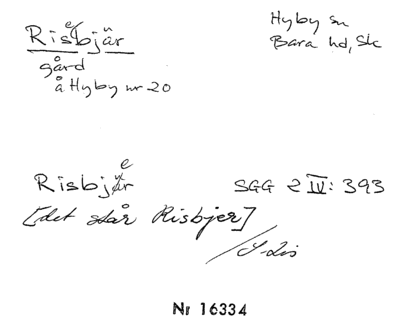 Risbjär
e
Hyby sn
Bara hd, Sk
gård
å Hyby nr 20
e
Risbjär
SGG 2 IV: 393
[det står Risbjer]
Nr 16334